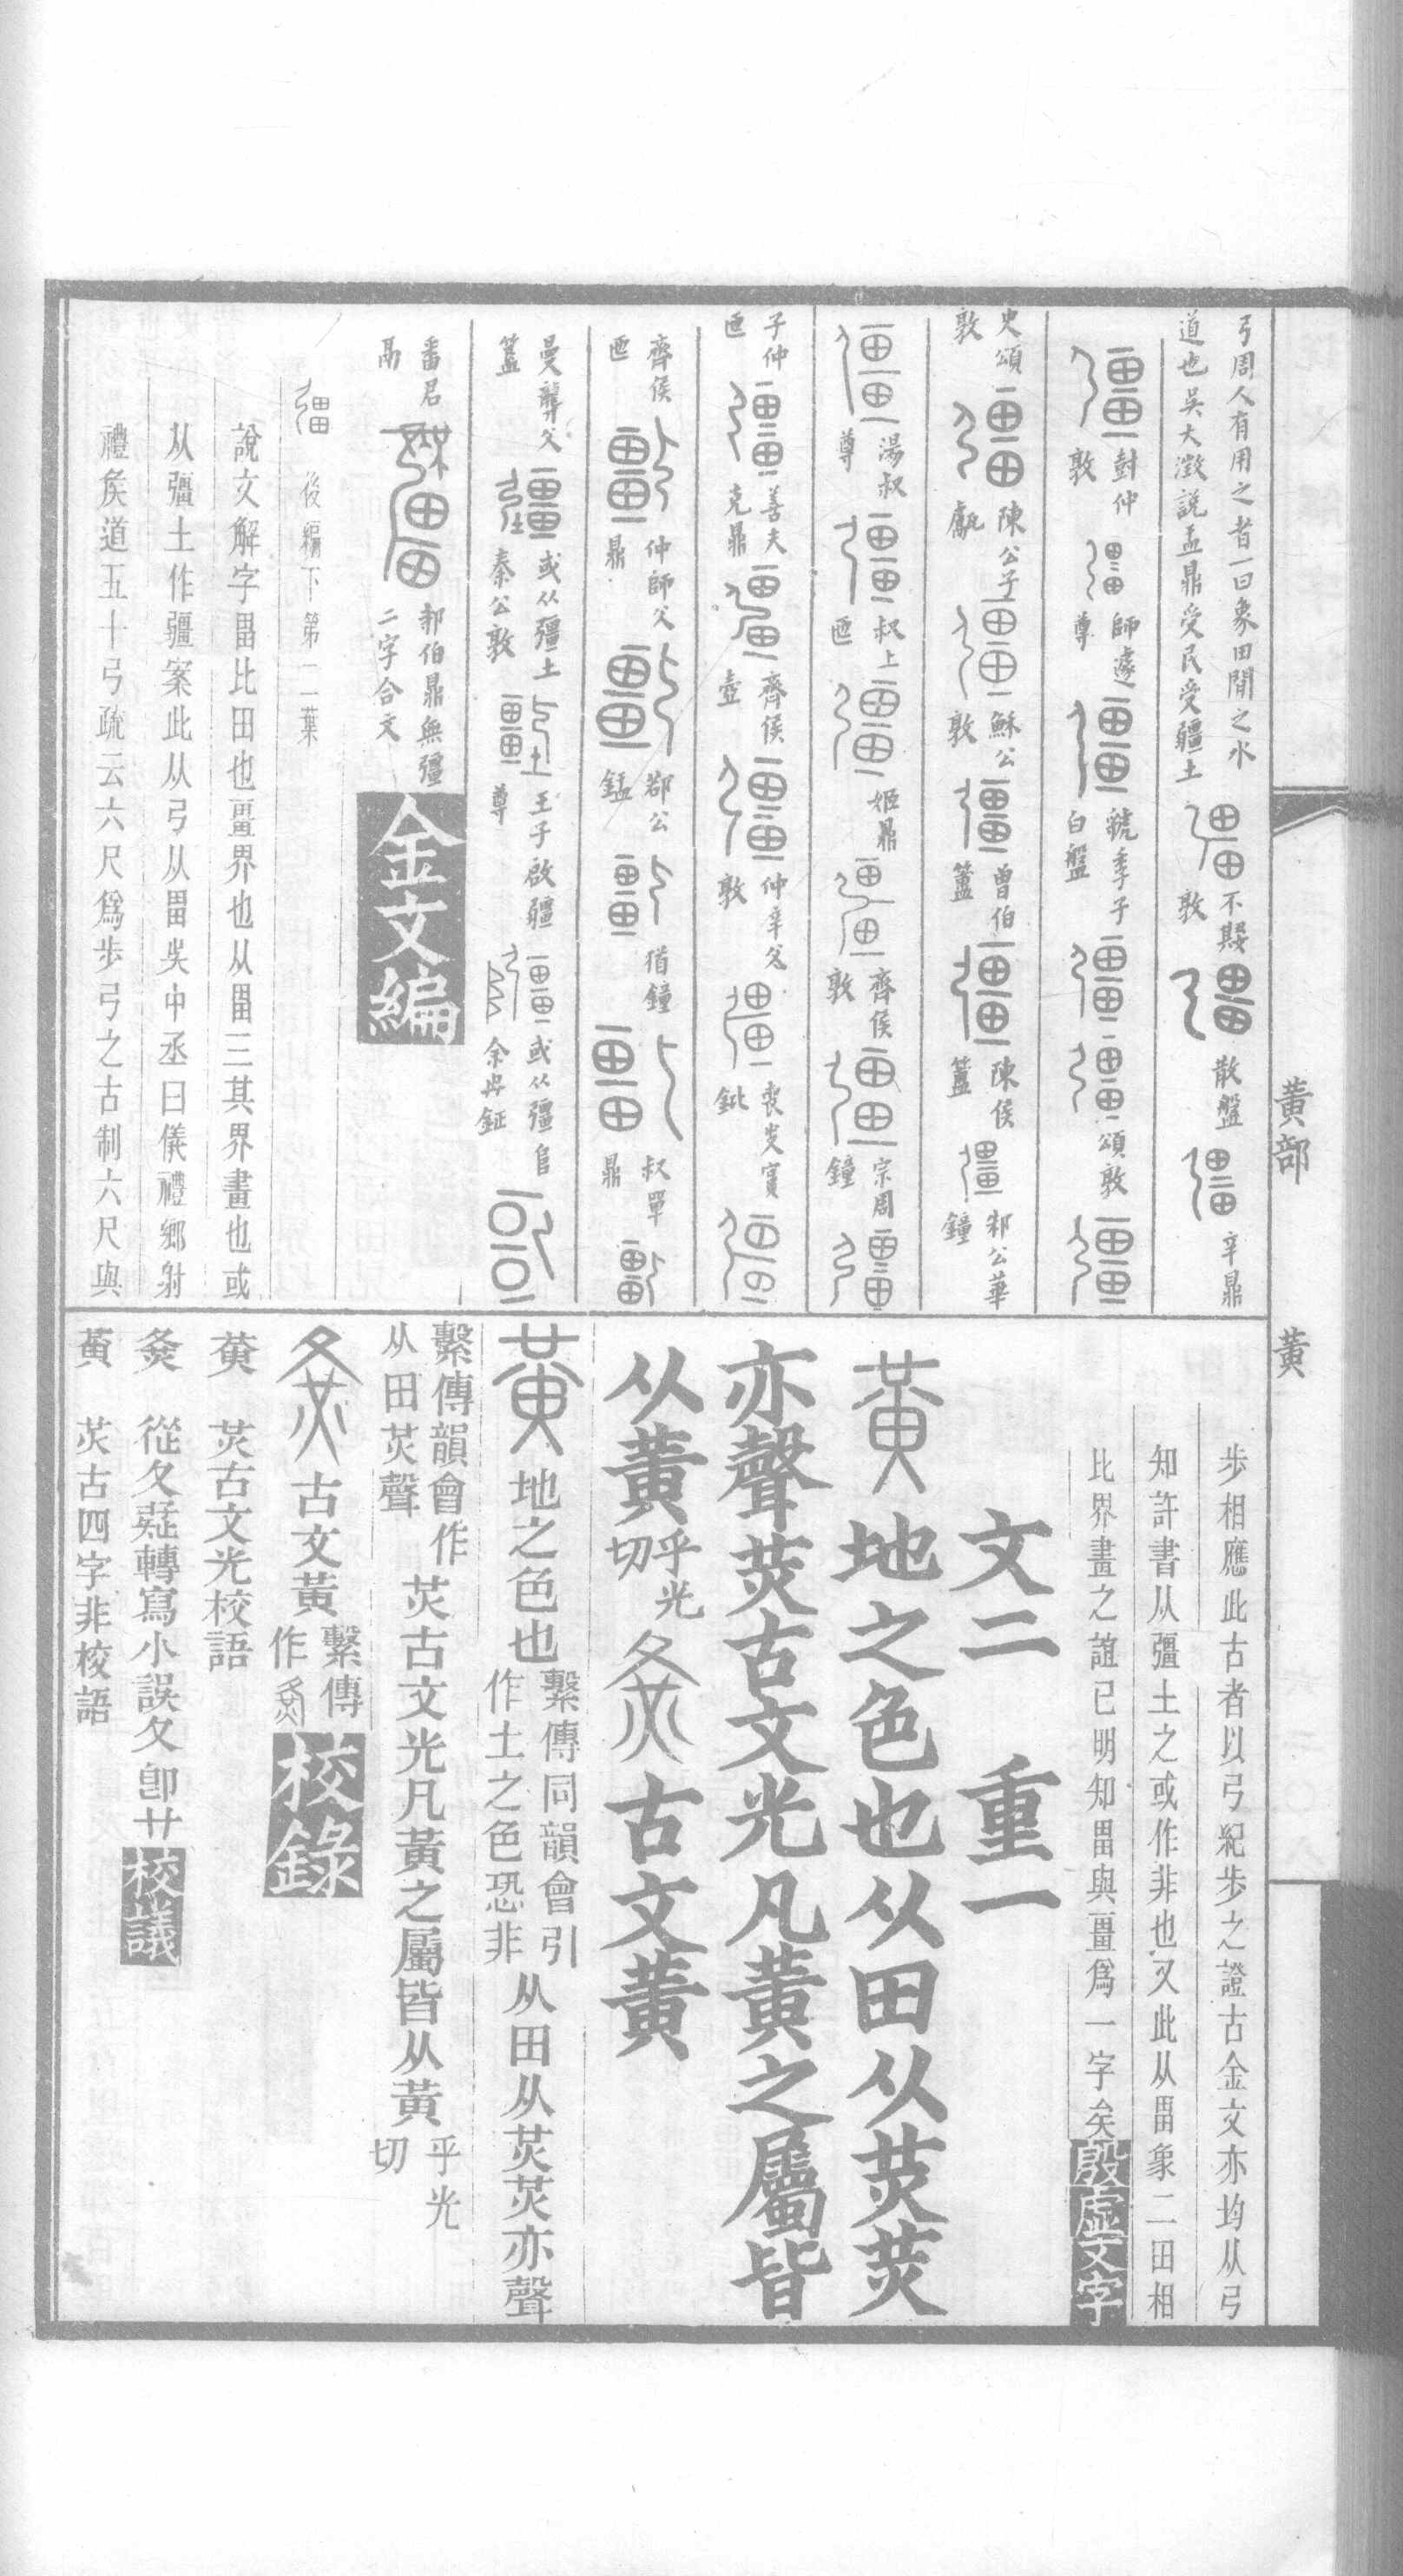 弓周人有用之者一曰象田閒之水
道也吳大澂說盂鼎受民受疆土 不𡢁敦 散盤 辛鼎
封仲敦 師遽尊 虢季子白盤 頌敦
史頌敦 陳公子甗 穌公敦 曾伯簠 陳侯簠 邾公華鐘
湯叔尊 叔上匜 姬鼎 齊侯敦 宗周鐘
子仲匜 善夫克鼎 齊侯壺 仲辛父敦 喪𡵂賓鉼
齊侯匜 仲師父鼎 鄀公錳 猶鐘 叔單鼎
曼龏父簠 或从彊土秦公敦 王子啟疆尊 或从彊𨸏余冉鉦
番君鬲 邾伯鼎無彊二字合文 金文編
後編下第二葉
說文解字畕比田也畺界也从畕三其界畫也或
从彊土作疆案此从弓从畕吳中丞曰儀禮鄉射
禮矦道五十弓疏云六尺爲步弓之古制六尺與
步相應此古者以弓紀步之證古金文亦均从弓
知許書从彊土之或作非也又此从畕象二田相
比界畫之誼已明知畕與畺爲一字矣 殷虛文字
文二 重一
黃 地之色也从田从炗炗
亦聲炗古文光凡黃之屬皆
从黃 乎光切 古文黃
黃 地之色也 繫傳同韻會引作土之色恐非 从田从炗炗亦聲
繫傳韻會作从田炗聲 炗古文光凡黃之屬皆从黃 乎光切
古文黃 繫傳作 校錄
黃 炗古文光校語
從夂疑轉寫小誤夂卽廿 校議
黃 炗古四字非校語
黃部 黃